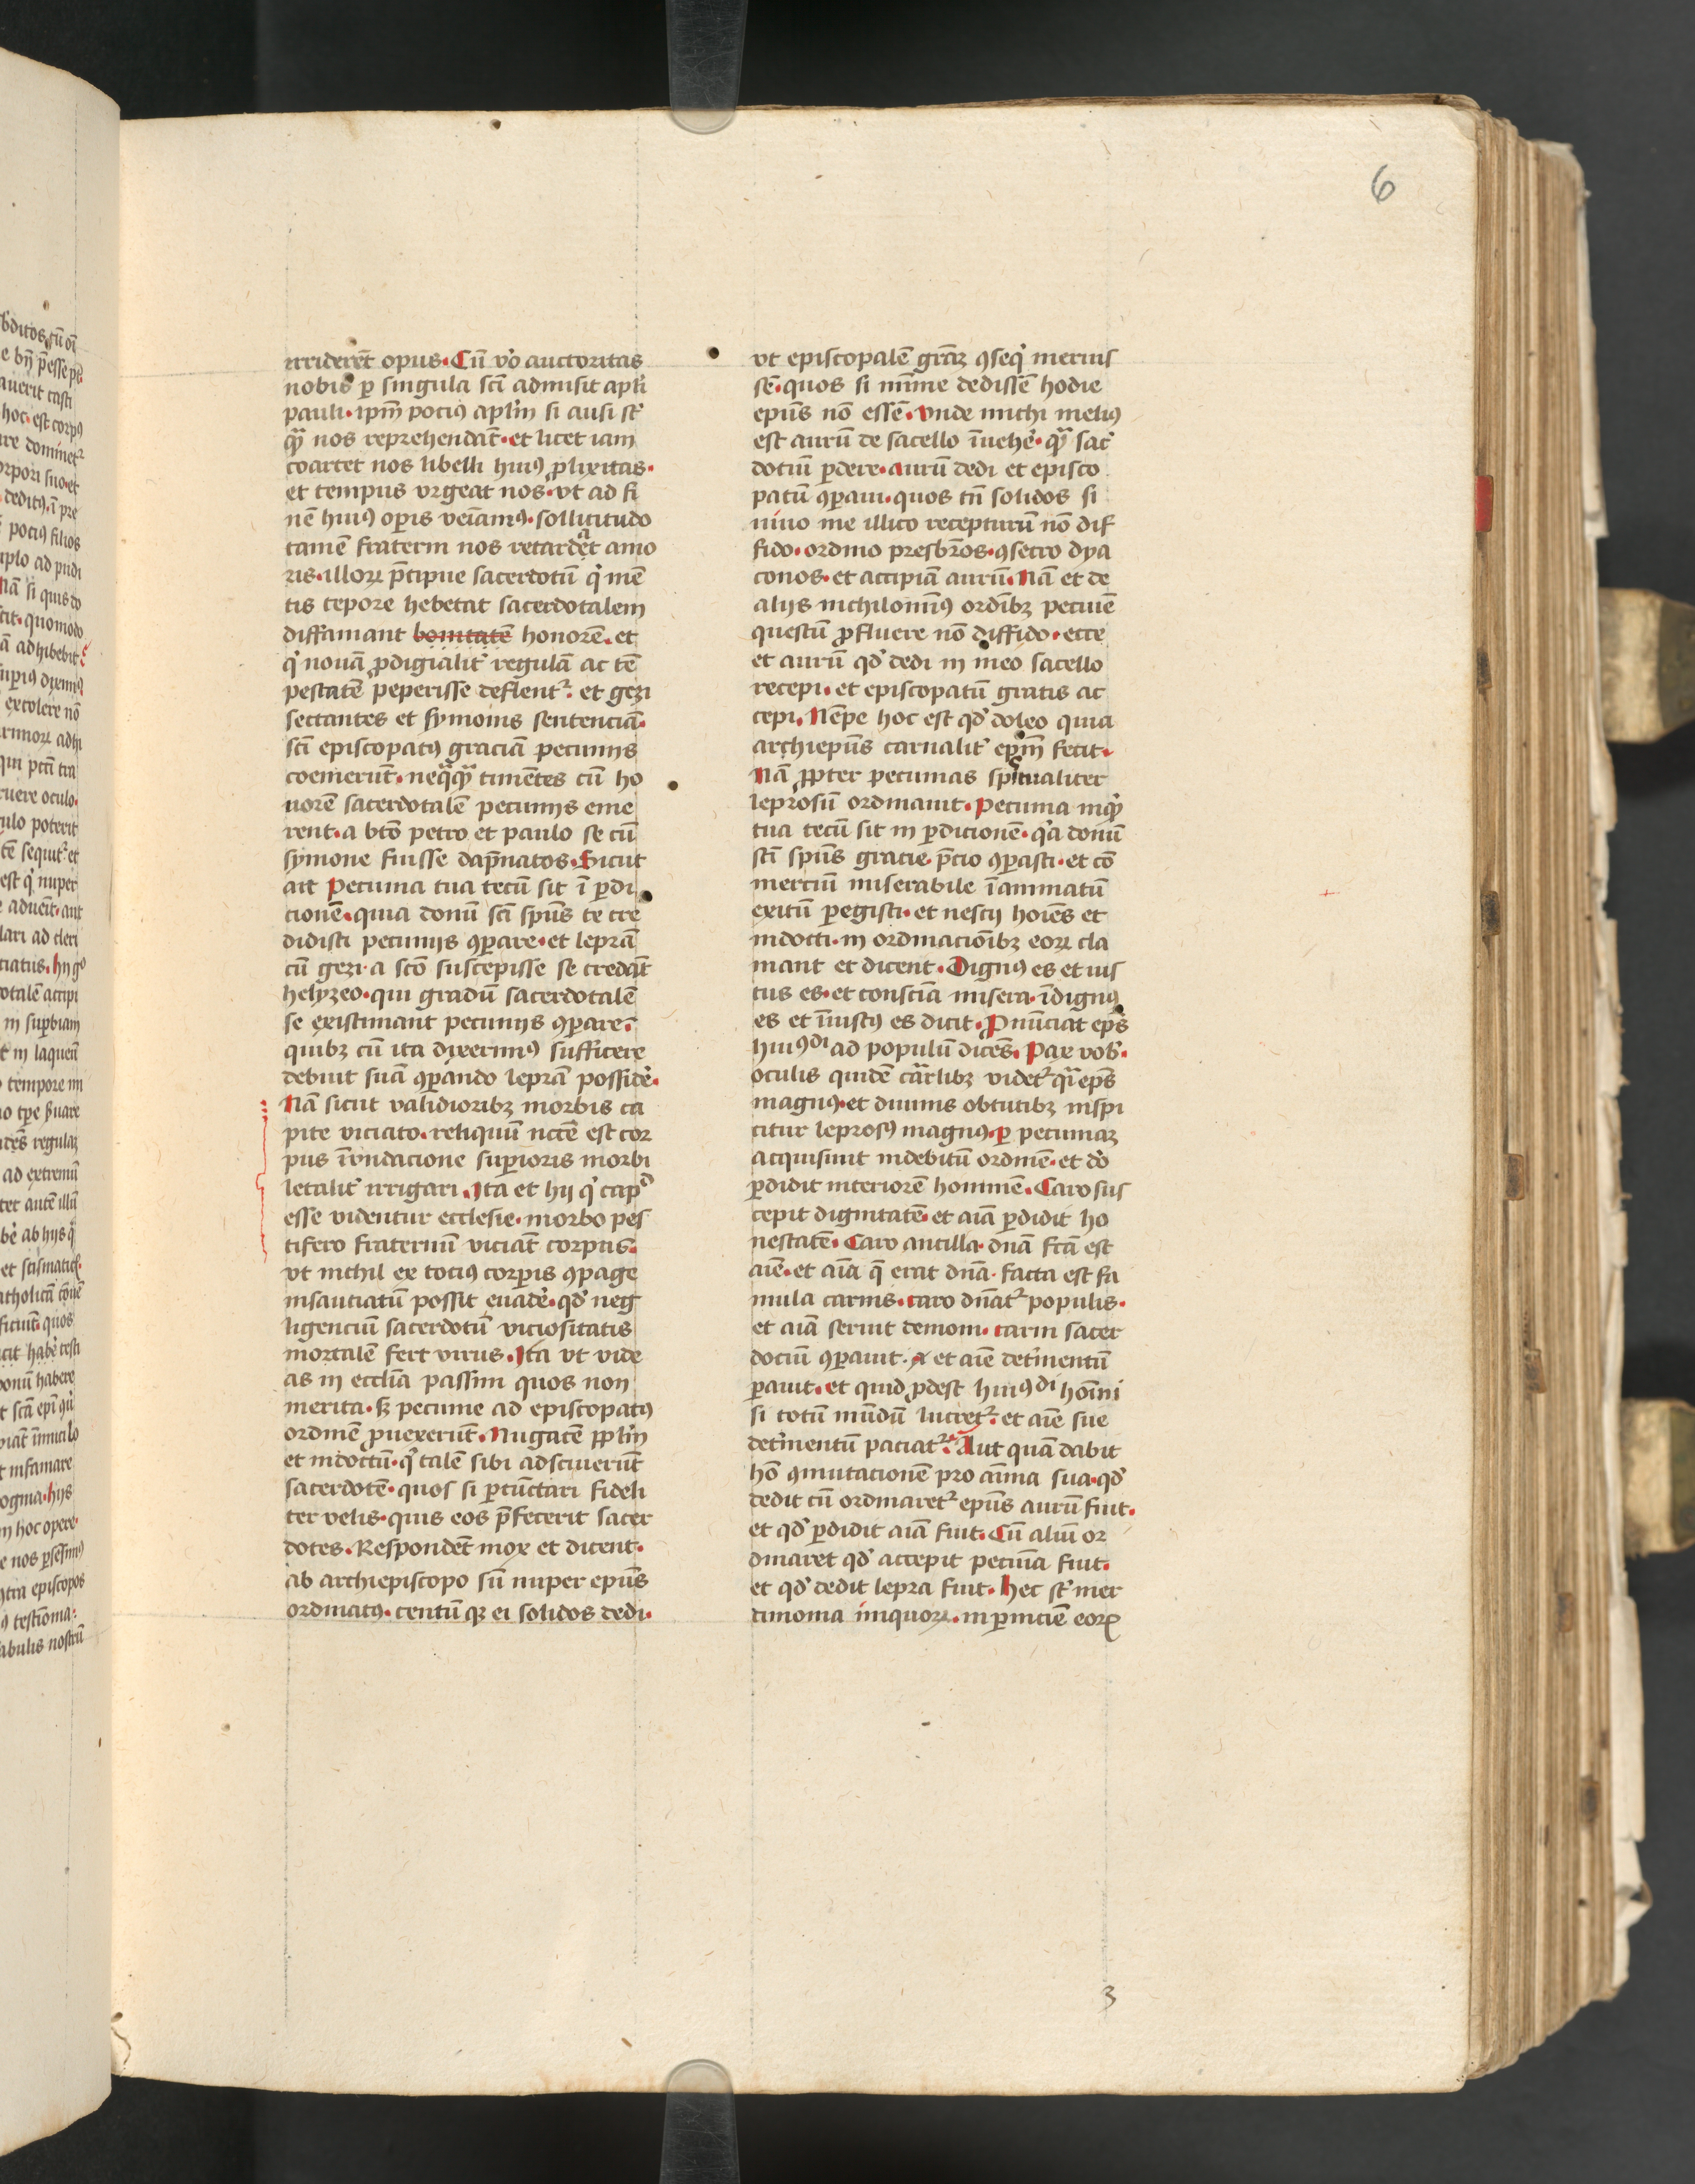 6
irriderēt opus. Cū v̊o auctoritas
nobis ꝑ singula scī admisit apl'i
pauli. ipm̄ pociꝰ apl'm si ausi st̄
qᷓ nos reprehendāt. et licet iam
coartet nos libelli huiꝰ ꝓlixitas.
et tempus vrgeat nos. vt ad fi
nē huiꝰ oꝑis veīamꝰ. sollicitudo
tamē fraterni nos retardet amo
ris. illoꝝ p̄cipue sacerdotū qͥ mē
tis tepore hebetat sacerdotalem
diffamant bonitatē honorē. et
qͥ nouā ꝓdigialit̕ regulā ac tē
pestatē peperisse deflentᷣ. et gezi
sectantes et symonis sentenciā.
scī episcopatꝰ graciā pecunijs
coemerūt. neqᷓqᷓ timētes cū ho
norē sacerdotalē pecunijs eme
rent. a btō petro et paulo se cū
symone fuisse dāpnatos. Sicut
ait Pecunia tua tecū sit ī ꝑdi
cionē. quia donū scī spūs te cre
didisti pecunijs ꝯꝑare. et leprā
cū gezi a scō suscepisse se credāt
helyzeo. qui gradū sacerdotalē
se existimant pecunijs ꝯꝑare.
quibꝫ cū ita dixerimꝰ sufficere
debuit suā ꝯꝑando leprā possid̕e.
Nā sicut validioribꝫ morbis ca
pite viciato. reliquū nc̄cē est cor
pus īūndacione suꝑioris morbi
letalit̕ irrigari. Ita et hij qͥ capᵈ
esse videntur ecclesie. morbo pes
tifero fraternū viciāt corpus.
vt nichil ex tociꝰ corꝑis ꝯpage
insauciatū possit euad̕e. qd̕ neg
ligenciū sacerdotū viciositatis
mortalē fert virus. Ita vt vide
as in eccl̄ia passim quos non
merita. sꝫ pecunie ad episcopatꝰ
ordinē ꝓuexerūt. Nugacē ppl'm
et indoctū. qͥ talē sibi adsciuerūt
sacerdotē. quos si ꝑcūctari fideli
ter velis. quis eos p̄fecerit sacer
dotes. Respondēt mox et dicent.
ab archiepiscopo sū nuper epūs
ordinatꝰ. centū qꝫ ei solidos dedi.
vt episcopalē grāꝫ ꝯseqͥ meruis
sē. quos si mīme dedissē hodie
epūs nō essē. vnde michi meliꝰ
est aurū de sacello īuehe̕. qᷓ sac̕
dotiū ꝑdere. aurū dedi et episco
patū ꝯꝑaui. quos tn̄ solidos si
uiuo me illico recepturū nō dif
fido. ordino presbr̄os. ꝯsecro dya
conos. et accipiā aurū. Nā et de
alijs nichilominꝰ ordībꝫ pecuīe
questū ꝓfluere nō diffido. ecce
et aurū qd̕ dedi in meo sacello
recepi. et episcopatū gratis ac
cepi. Nēpe hoc est qd̕ doleo quia
archiepūs carnalit̕ epm̄ fecit.
Nā ꝓpter pecunias spiritualiter
leprosū ordinauit. Pecunia inqͥ
tua tecū sit in ꝑdicionē. qᷓa donū
scī spūs gracie p̄cio ꝯꝑasti. et cō
merciū miserabile īanimatū
exitū ꝑegisti. et nescij hoīes et
indocti. in ordinacioībꝫ eoꝝ cla
mant et dicent. Dignꝰ es et ius
tus es. et consciā misera. īdignꝰ
es et īiustꝰ es dicit. Pnūciat ep̄s
huiꝰdi ad populū dicēs. Pax vob̕.
oculis quidē carᷓlibꝫ videtᷣ qᷓi ep̄s
magnꝰ. et diuinis obtutibꝫ inspi
citur leprosꝰ magnꝰ. ꝑ pecuniaꝫ
acquisiuit indebitū ordinē. et d̕o
ꝑdidit interiorē hominē. Caro sus
cepit dignitatē. et aīā ꝑdidit ho
nestatē. Caro ancilla. dn̄a fc̄a est
aīe. et aīa q̄ erat dn̄a. facta est fa
mula carnis. caro dn̄atᷣ populis.
et aīa seruit demoni. carni sacer
dociū ꝯꝑauit. et aīe detᷤmentū
ꝑauit. et quid ꝓdest huiꝰdi hoīni
si totū mūdū lucretᷣ. et aīe sue
detᷤmentū paciatᷣ. Aut quā dabit
hō ꝯmutacionē pro anīma sua. qd̕
dedit cū ordinaretᷣ epūs aurū fuit.
et qd̕ ꝑdidit aīā fuit. Cū aliū or
dinaret qd̕ accepit pecuīa fuit.
et qd̕ dedit lepra fuit. hec st̄ mer
cimonia iniquoꝝ. in ꝑniciē eoꝝ
3